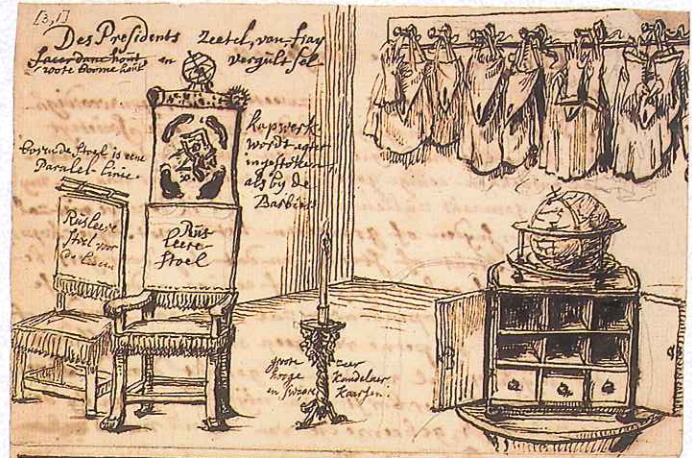 [3,1]
Des Presidents Zeetel, van fray
sacerdane hout en vergult sel
roote boome hout
bovende streek is eene
Paralel-Linie.
kapwerk
wordt agter
ingestoken
als by de
Barbiers
Rusleere
stoel voor
de Leeden
Rus
leere
stoel
groote zeer
hooge kandelaer
en swaare kaarsen.